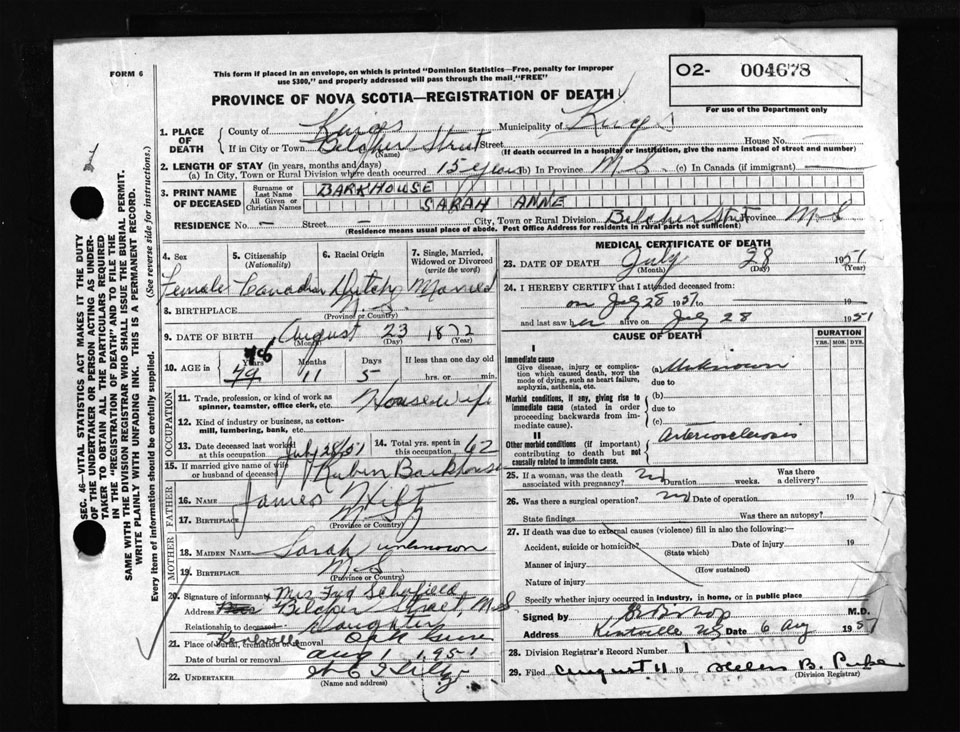 FORM 6
This form if placed in an envelope, on which is printed "Dominion Statistics—Free, penalty for improper
use $300," and properly addressed will pass through the mail "FREE"
O2- 004678
For use of the Department only
PROVINCE OF NOVA SCOTIA—REGISTRATION OF DEATH
1. PLACE OF DEATH
County of Kings Municipality of Kings
If in City or Town Belcher Street Street House No.
(Name) (If death occurred in a hospital or institution, give the name instead of street and number)
2. LENGTH OF STAY (in years, months and days)
(a) In City, Town or Rural Division where death occurred 15 years (b) In Province N.S. (c) In Canada (if immigrant)
3. PRINT NAME OF DECEASED
Surname or Last Name BARKHOUSE
All Given or Christian Names SARAH ANNE
RESIDENCE No. — Street — City, Town or Rural Division Belcher Street Province N.S
(Residence means usual place of abode. Post Office Address for residents in rural parts not sufficient)
4. Sex
Female
5. Citizenship
(Nationality)
Canadian
6. Racial Origin
Dutch
7. Single, Married, Widowed or Divorced
(write the word)
Married
8. BIRTHPLACE N.S.
(Province or Country)
9. DATE OF BIRTH August 23 1872
(Month) (Day) (Year)
10. AGE in
Years Months Days If less than one day old
79 78 11 5 hrs. or min.
OCCUPATION
11. Trade, profession or kind of work as
spinner, teamster, office clerk, etc. Housewife
12. Kind of industry or business, as cotton-
mill, lumbering, bank, etc.
13. Date deceased last worked
at this occupation July 28/51
14. Total yrs. spent in
this occupation 62
15. If married give name of wife
or husband of deceased Rubin Barkhouse
FATHER
16. Name James
17. BIRTHPLACE
(Province or Country)
MOTHER
18. MAIDEN NAME Sarah unknown
19. BIRTHPLACE N.S.
(Province or Country)
20. Signature of informant Mrs Schofield
Address Belcher Street, N.S
Relationship to deceased Daughter
21. Place of burial, cremation or removal Oak Grove
Kentville
Date of burial or removal Aug 1 1951
22. UNDERTAKER
(Name and address)
MEDICAL CERTIFICATE OF DEATH
23. DATE OF DEATH July 28 1951
(Month) (Day) (Year)
24. I HEREBY CERTIFY that I attended deceased from
on July 28 1951 to 19
and last saw her alive on July 28 1951
CAUSE OF DEATH
DURATION
YRS. MOS. DYS.
I
Immediate cause
Give disease, injury or complica-
tion which caused death, not the
mode of dying, such as heart failure,
asphyxia, asthenia, etc.
(a) Unknown
due to
Morbid conditions, if any, giving rise to
immediate cause (stated in order
proceeding backwards from im-
mediate cause).
(b)
due to
(c)
II
Other morbid conditions (if important)
contributing to death but not
causally related to immediate cause.
Arteriosclerosis
25. If a woman, was the death
associated with pregnancy? no Duration weeks. Was there
a delivery?
26. Was there a surgical operation? no Date of operation 19
State findings Was there an autopsy?
27. If death was due to external causes (violence) fill in also the following:—
Accident, suicide or homicide? Date of injury 19
(State which)
Manner of injury
(How sustained)
Nature of injury
Specify whether injury occurred in industry, in home, or in public place
Signed by Bishop M.D.
Address Kentville NS Date 6 Aug 1951
28. Division Registrar's Record Number 1
29. Filed August 11 19 Helen B.
(Division Registrar)
SEC. 46—VITAL STATISTICS ACT MAKES IT THE DUTY
OF THE UNDERTAKER OR PERSON ACTING AS UNDER-
TAKER TO OBTAIN ALL THE PARTICULARS REQUIRED
IN THE "REGISTRATION OF DEATH" AND TO FILE THE
SAME WITH THE DIVISION REGISTRAR WHO SHALL ISSUE THE BURIAL PERMIT.
WRITE PLAINLY WITH UNFADING INK. THIS IS A PERMANENT RECORD.
Every item of information should be carefully supplied. (See reverse side for instructions.)